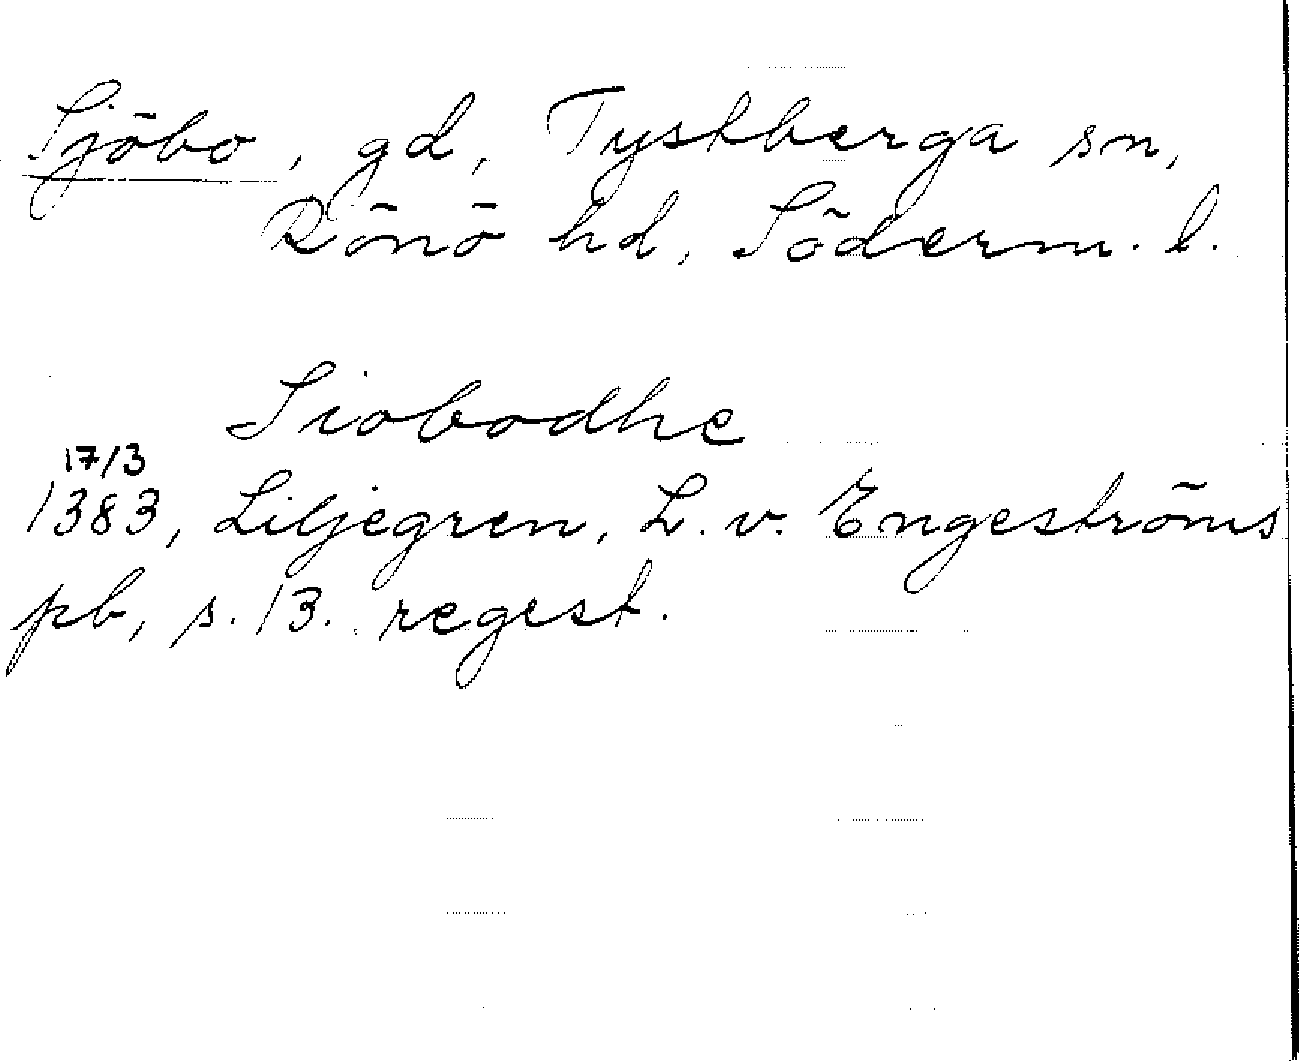 Sjöbo, gd, Tystberga sn,
Rönö hd, Söderm. l.
Siobodhe
17/3
1383, Liljegren, L. v. Engeströms
pb, s. 13. regest.